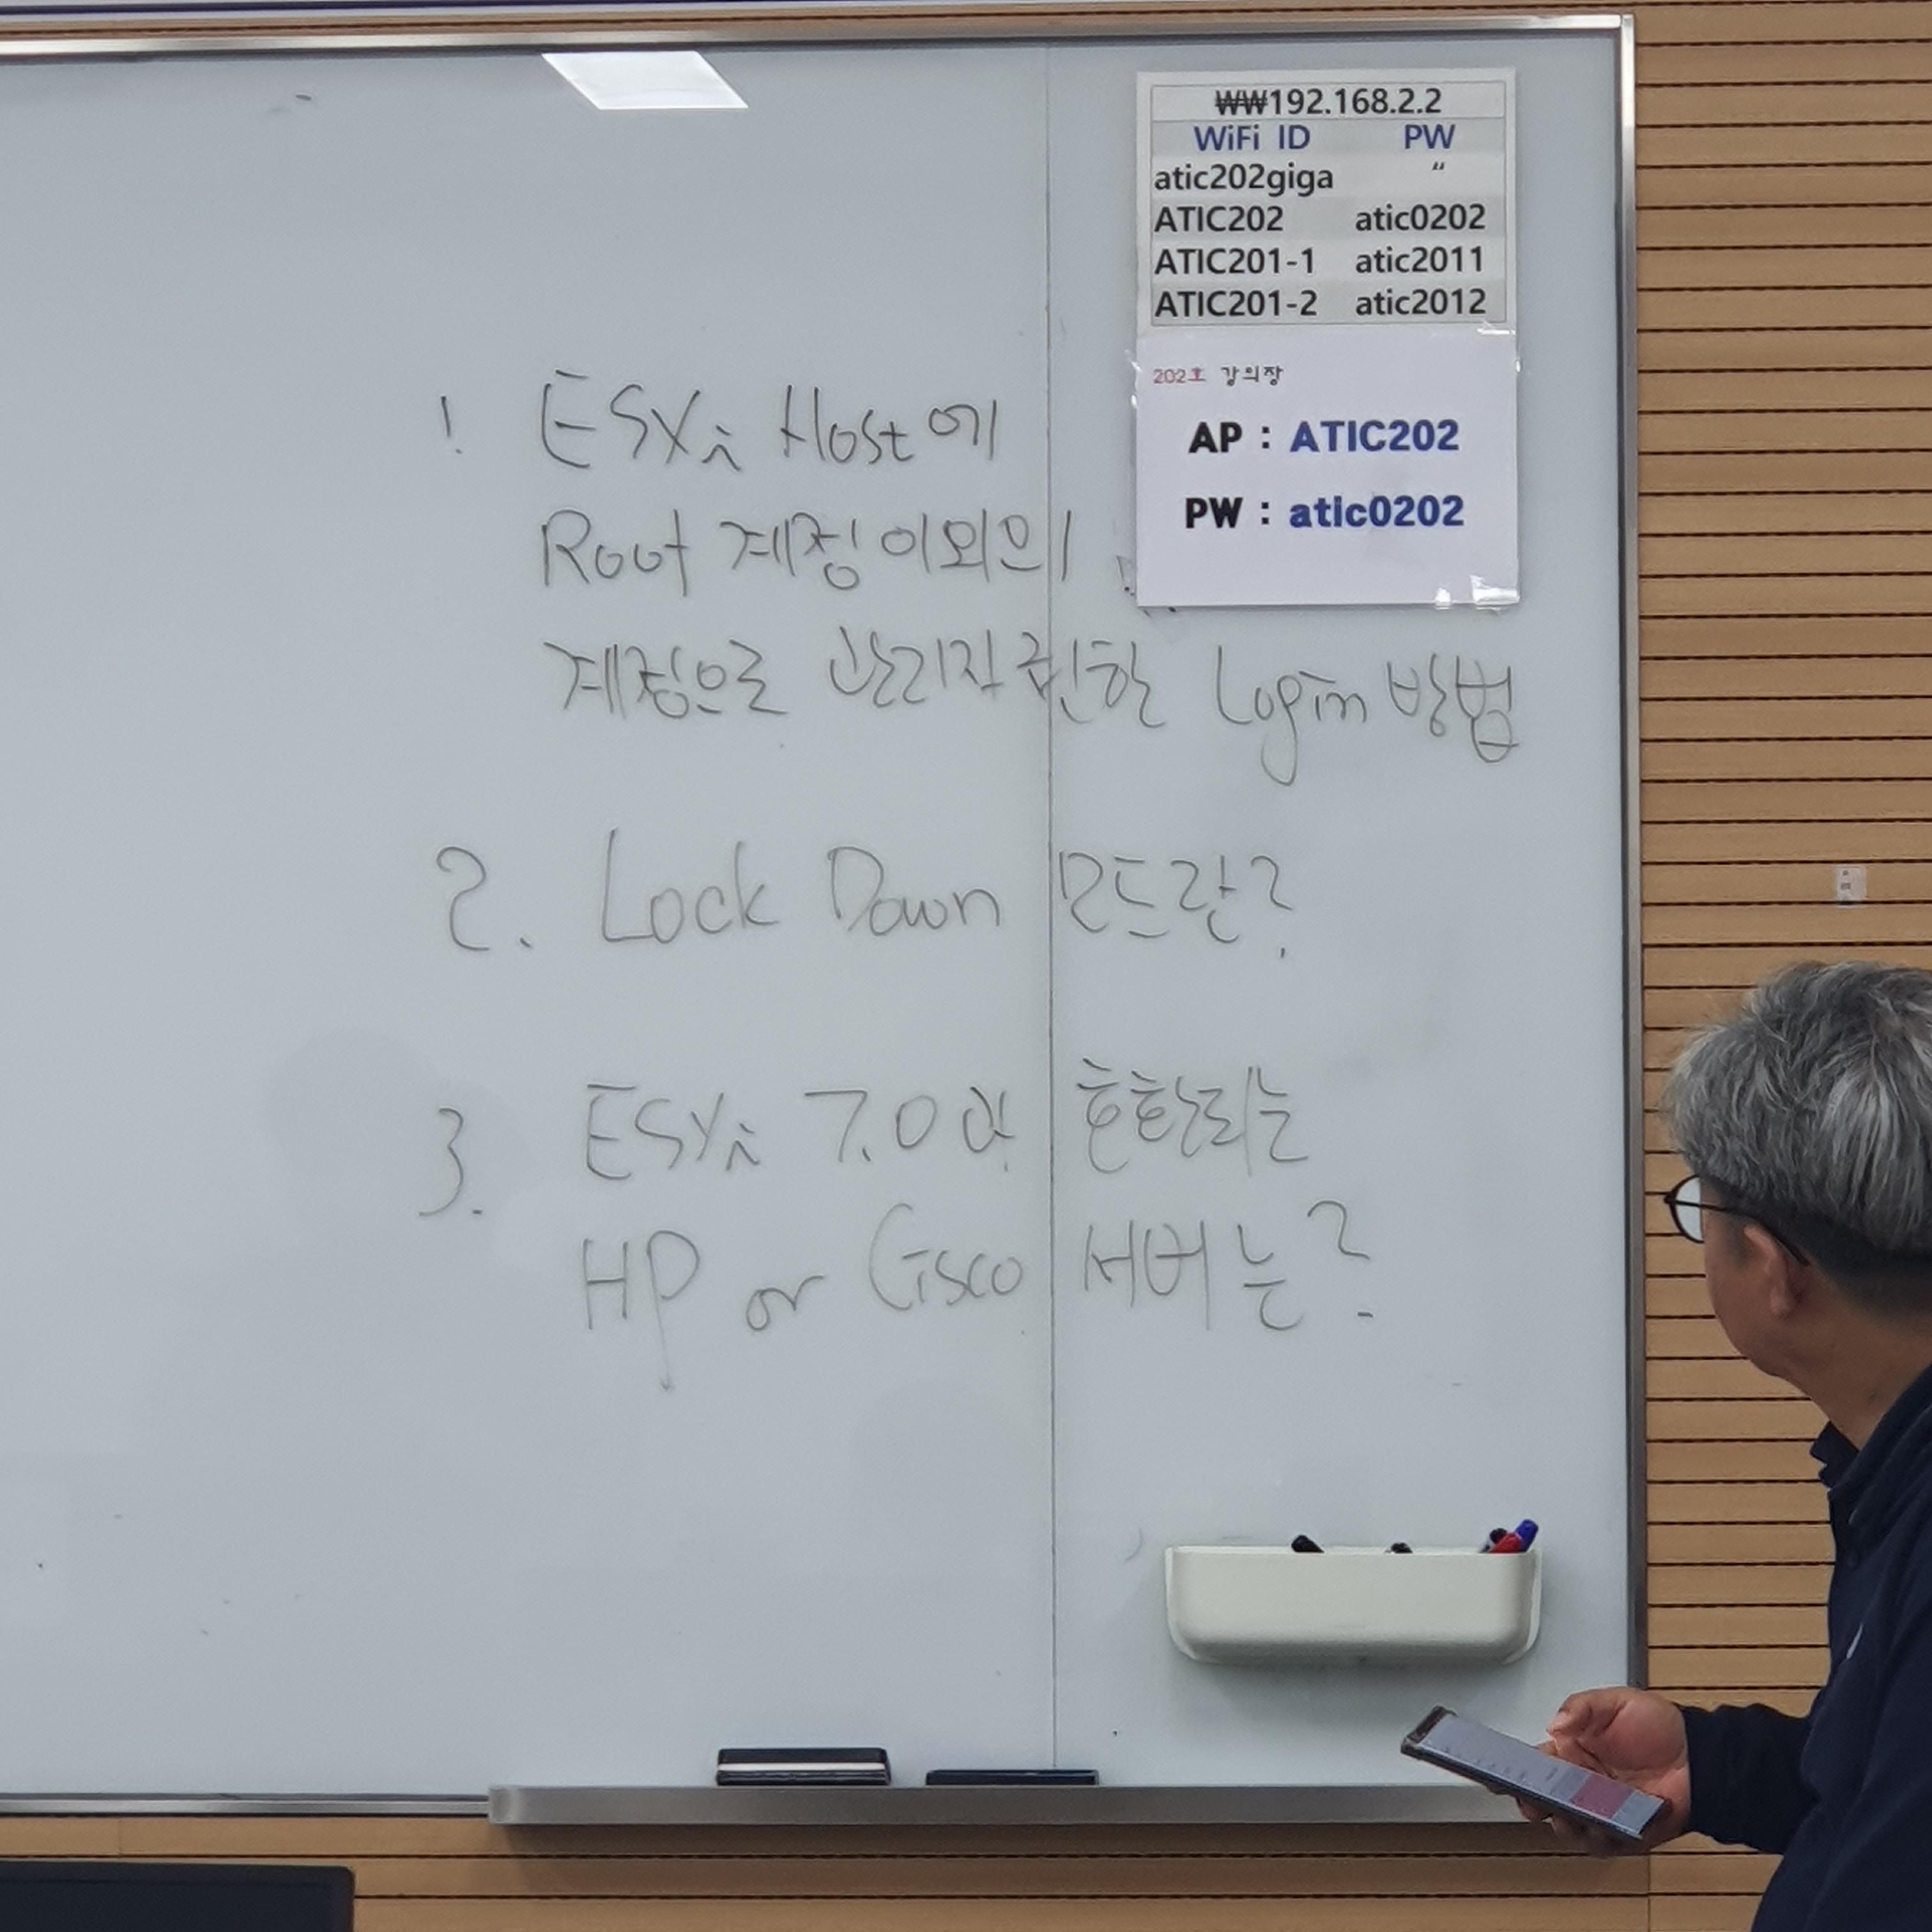 ₩₩192.168.2.2
WiFi ID PW
atic202giga "
ATIC202 atic0202
ATIC201-1 atic2011
ATIC201-2 atic2012
202호 강의장
AP : ATIC202
PW : atic0202
1 ESXi Host에
Root 계정 이외의
계정으로 관리자 권한 Login 방법
2. Lock Down 모드란?
3. ESXi 7.0과 호환되는
HP or Cisco 서버는?